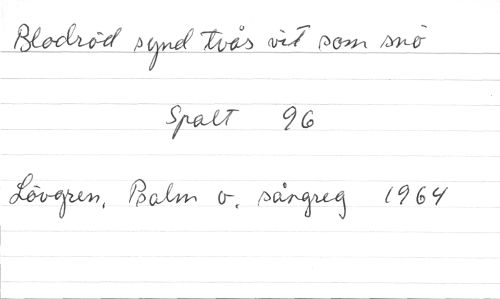 Blodröd synd tvås vit som snö
Spalt 96
Lövgren, Psalm o. sångreg 1964